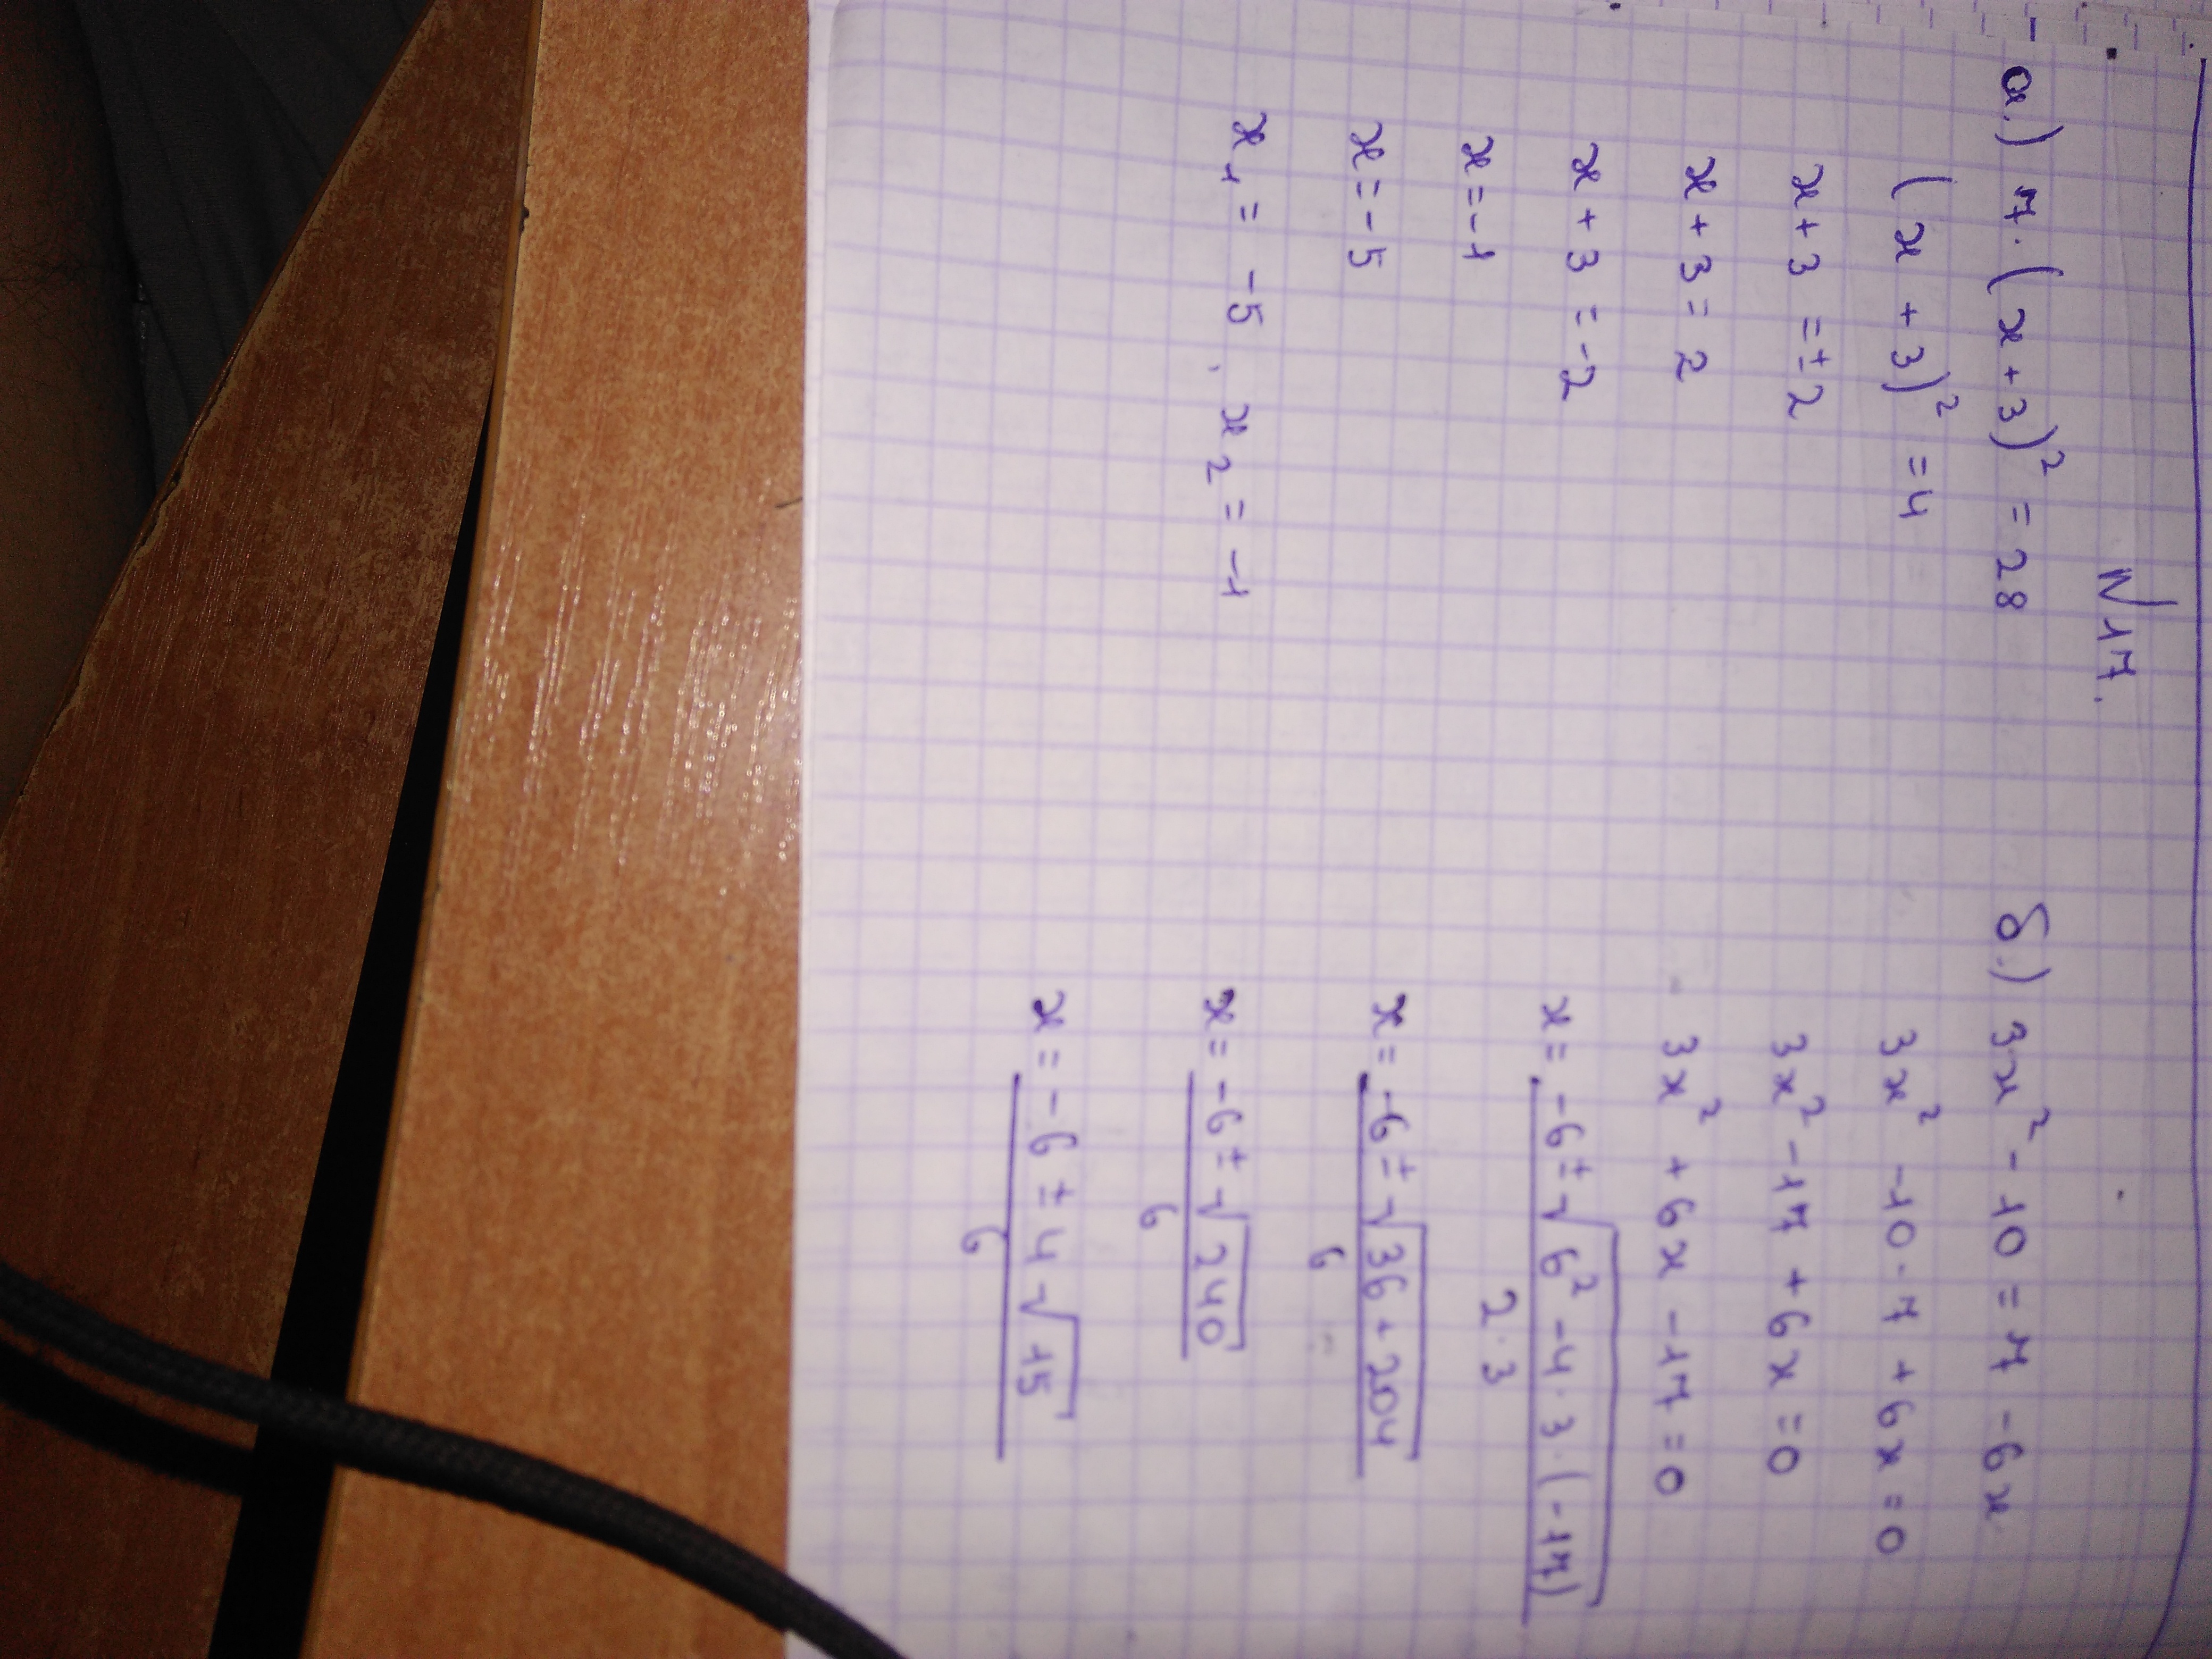 N17.
а.) 7·(x+3)² = 28
(x + 3)² = 4
x+3 = ±2
x+3 = 2
x+3 = -2
x=-1
x=-5
x₁ = -5, x₂ = -1
б.) 3x² - 10 = 7 - 6x
3x² -10-7+6x=0
3x² -17 + 6x = 0
3x² + 6x -17 = 0
x = -6±√6²-4·3·(-17)
2·3
x = -6±√36+204
6
x = -6±√240
6
x = -6±4√15
6